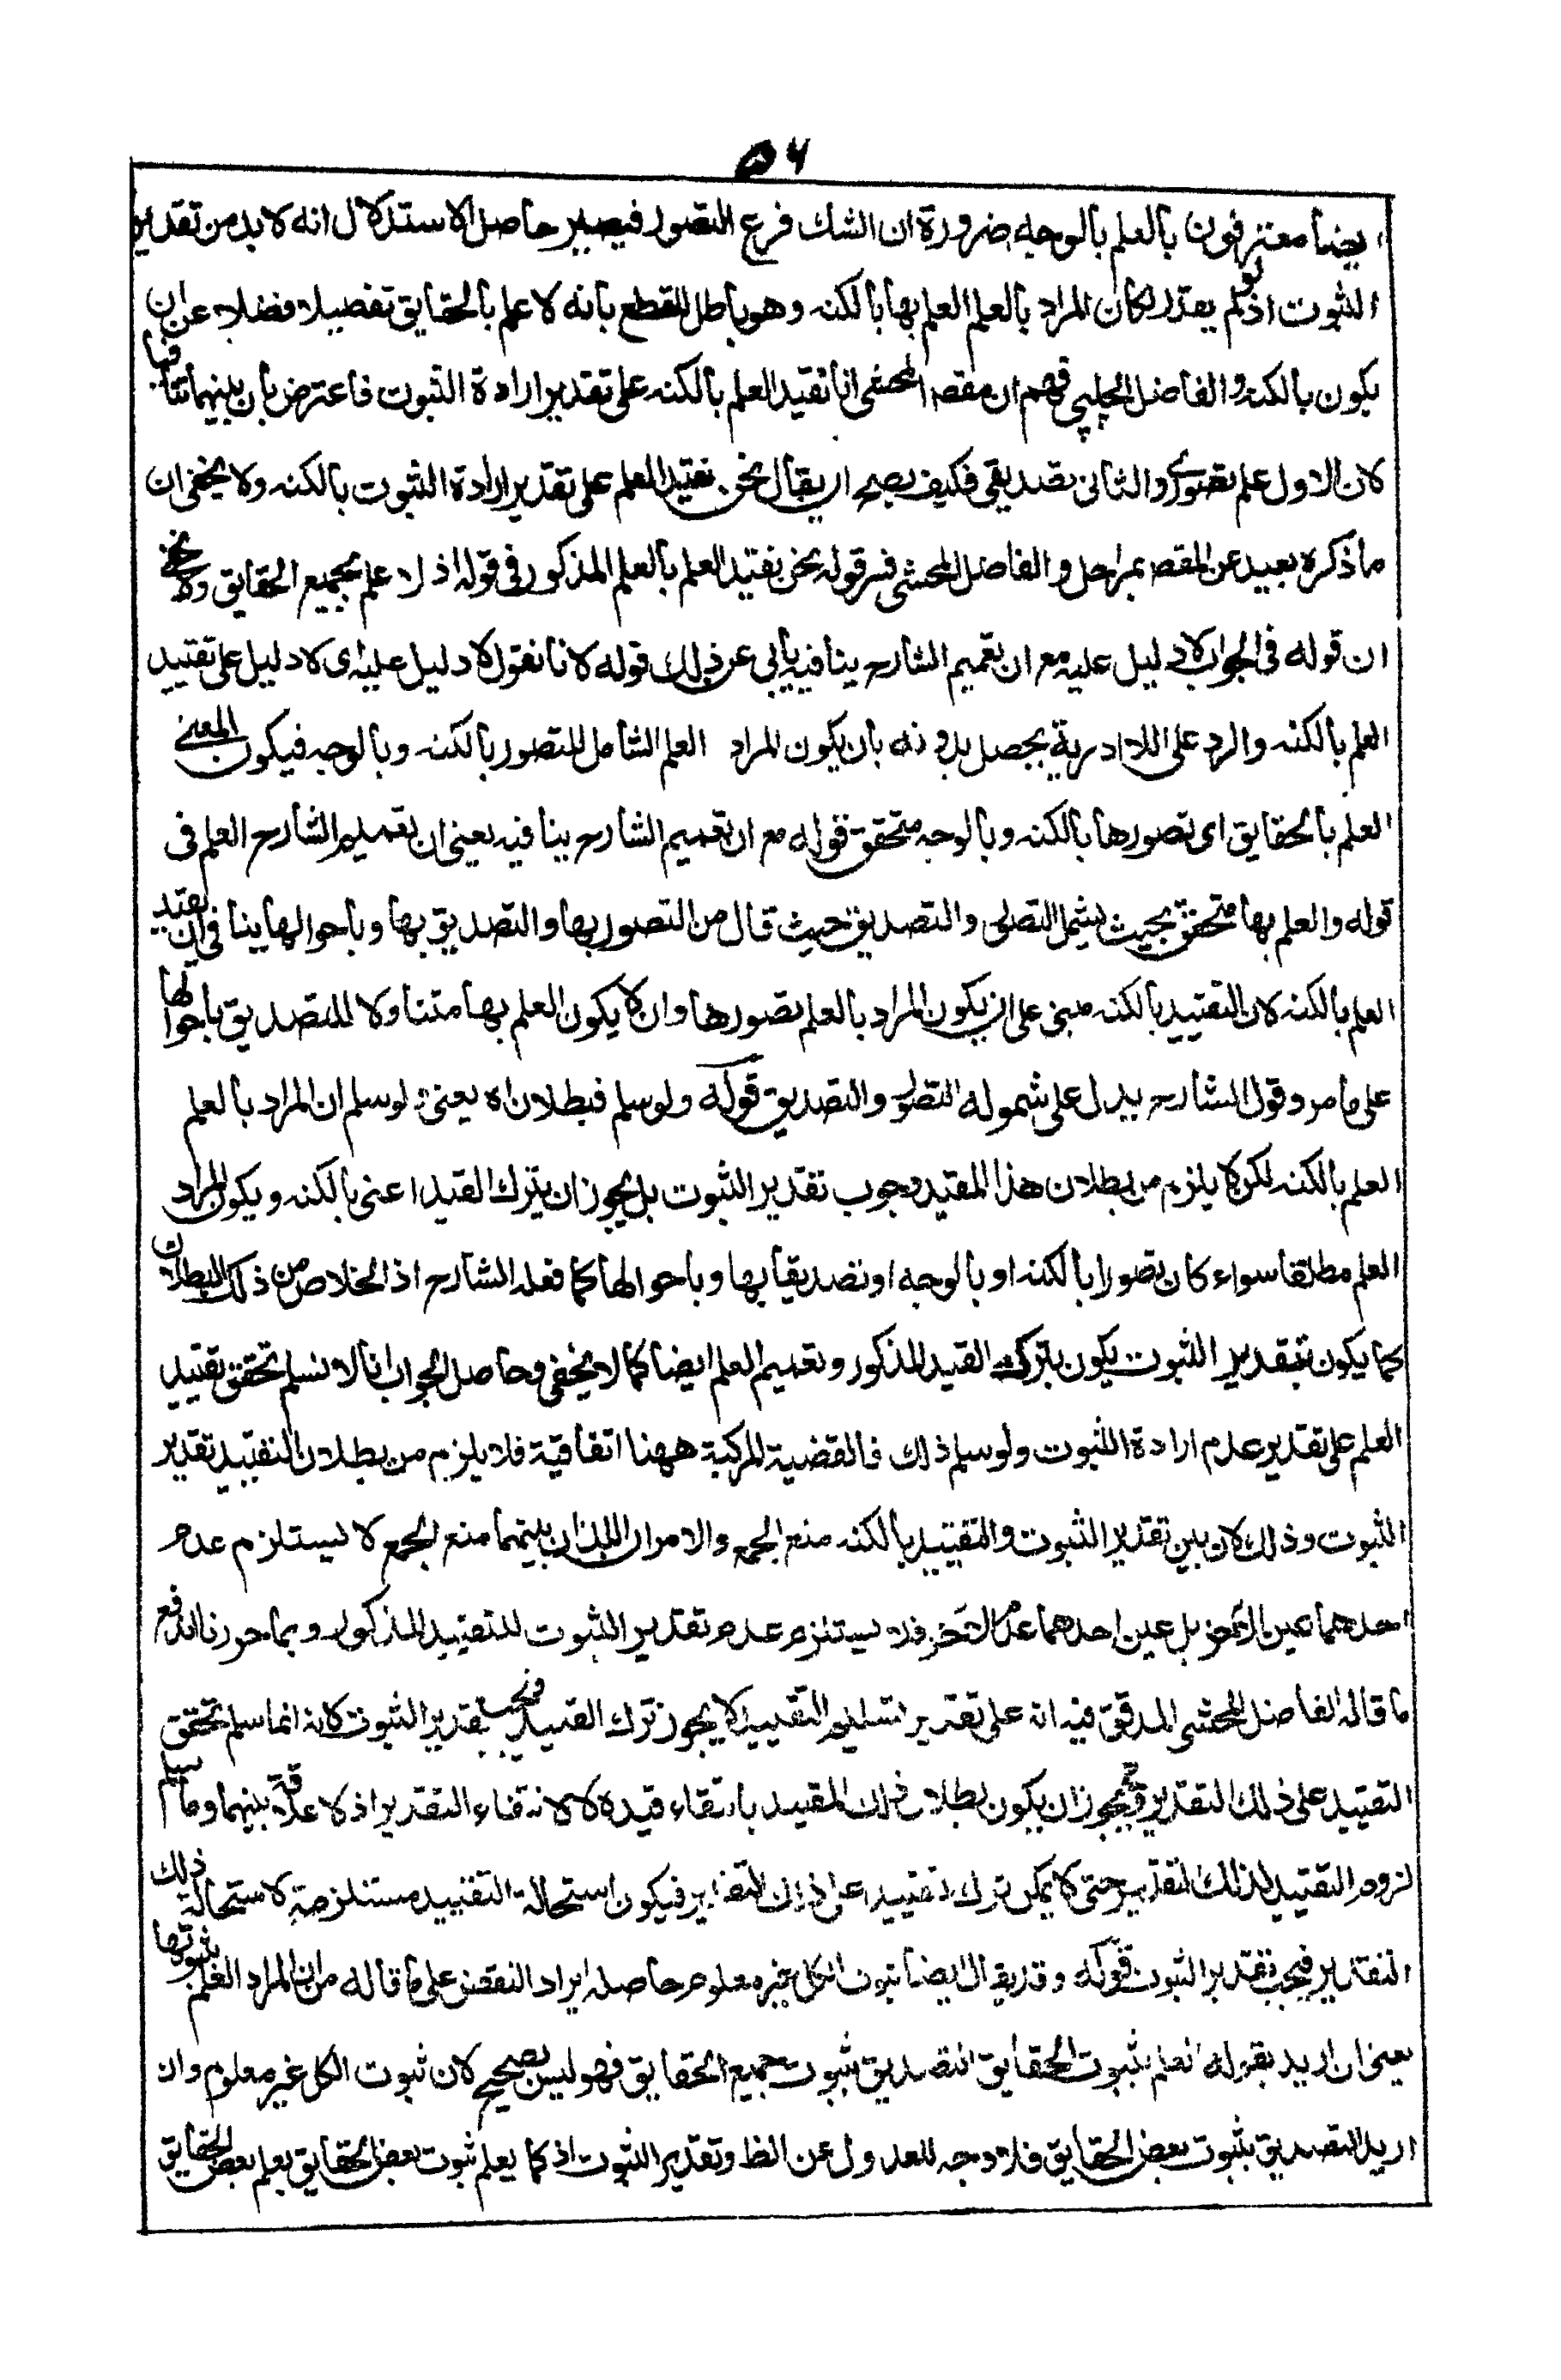 ۵۶
ايضا معترفون بالعلم بالوجه ضرورة ان الشك فرع التصور فيصير حاصل الاستدلال انه لا بد من تقدير
الثبوت اذ لو لم يقدر لكان المراد بالعلم العلم بها بالكنه وهو باطل للقطع بانه لا علم بالحقايق تفصيلا فضلا عن ان
يكون بالكنه والفاضل الچلپي فهم ان مقصد المحشى انا نقيد العلم بالكنه على تقدير ارادة الثبوت فاعترض بان بينهما تنافيا
لان الاول علم تصورى والثانى تصديقى فكيف يصح ان يقال نحن نقيد العلم على تقدير ارادة الثبوت بالكنه ولا يخفى ان
ما ذكره بعيد عن المقصد بمراحل والفاضل المحشى فسر قوله نحن نقيد العلم بالعلم المذكور فى قوله اذ لا علم بجميع الحقايق ولا يخفى
ان قوله فى الجواب لا دليل عليه مع ان تعميم الشارح ينافيه يأبى عن ذلك قوله لانا نقول لا دليل عليه اى لا دليل على تقييد
العلم بالكنه والرد على اللاادرية يحصل بدونه بان يكون المراد العلم الشامل للتصور بالكنه وبالوجه فيكون المعنى
العلم بالحقايق اى تصورها بالكنه وبالوجه متحقق قوله مع ان تعميم الشارح ينافيه يعنى ان تعميم الشارح العلم فى
قوله والعلم بها متحقق بحيث يشمل التصور والتصديق حيث قال من التصور بها والتصديق بها وباحوالها ينافى ان تقييد
العلم بالكنه لان التقييد بالكنه مبنى على ان يكون المراد بالعلم تصورها وان لا يكون العلم بها متناولا للتصديق باحوالها
على ما مر وقول الشارح يدل على شموله التصور والتصديق قوله ولو سلم فبطلان اه يعنى لو سلم ان المراد بالعلم
العلم بالكنه لكن لا يلزم من بطلان هذا المقيد وجوب تقدير الثبوت بل يجوز ان يترك القيد اعنى بالكنه ويكون المراد
العلم مطلقا سواء كان تصورا بالكنه او بالوجه او تصديقا بها وباحوالها كما فعله الشارح اذ الخلاص من ذلك البطلان
كما يكون بتقدير الثبوت يكون بترك القيد المذكور وتعميم العلم ايضا كما لا يخفى وحاصل الجواب انا لا نسلم تحقق تقييد
العلم على تقدير عدم ارادة الثبوت ولو سلم ذلك فالقضية المركبة ههنا اتفاقية فلا يلزم من بطلان التقييد تقدير
الثبوت وذلك لان بين تقدير الثبوت والتقييد بالكنه منع الجمع والامران اللذان بينهما منع الجمع لا يستلزم عدم
احدهما عين الاخر بل عين احدهما عدم الاخر فلا يستلزم عدم تقدير الثبوت للتقييد المذكور وبما حررنا اندفع
ما قاله الفاضل المحشى المدقق فيه انه على تقدير تسليم التقييد لا يجوز ترك القيد فيجب تقدير الثبوت لانه انما سلم تحقق
التقييد على ذلك التقدير فيجوز ان يكون بطلان ذلك المقيد بانتقاء قيده لا لانتفاء التقدير اذ لا علاقة بينهما وما سلم
لزوم التقييد لذلك التقدير حتى لا يمكن ترك تقييد على ذلك التقدير فيكون استحالة التقييد مستلزمة لاستحالة ذلك
التقدير فيجب تقدير الثبوت قوله وقد يقال ايضا ثبوت الكل غير معلوم حاصله ايراد النقض على ما قاله من ان المراد العلم بثبوتها
يعنى ان اريد بقوله العلم بثبوت الحقايق التصديق بثبوت جميع الحقايق فهو ليس بصحيح لان ثبوت الكل غير معلوم وان
اريد التصديق بثبوت بعض الحقايق فلا وجه للعدول عن الظ وتقدير الثبوت اذ كما يعلم ثبوت بعض الحقايق يعلم بعض الحقايق